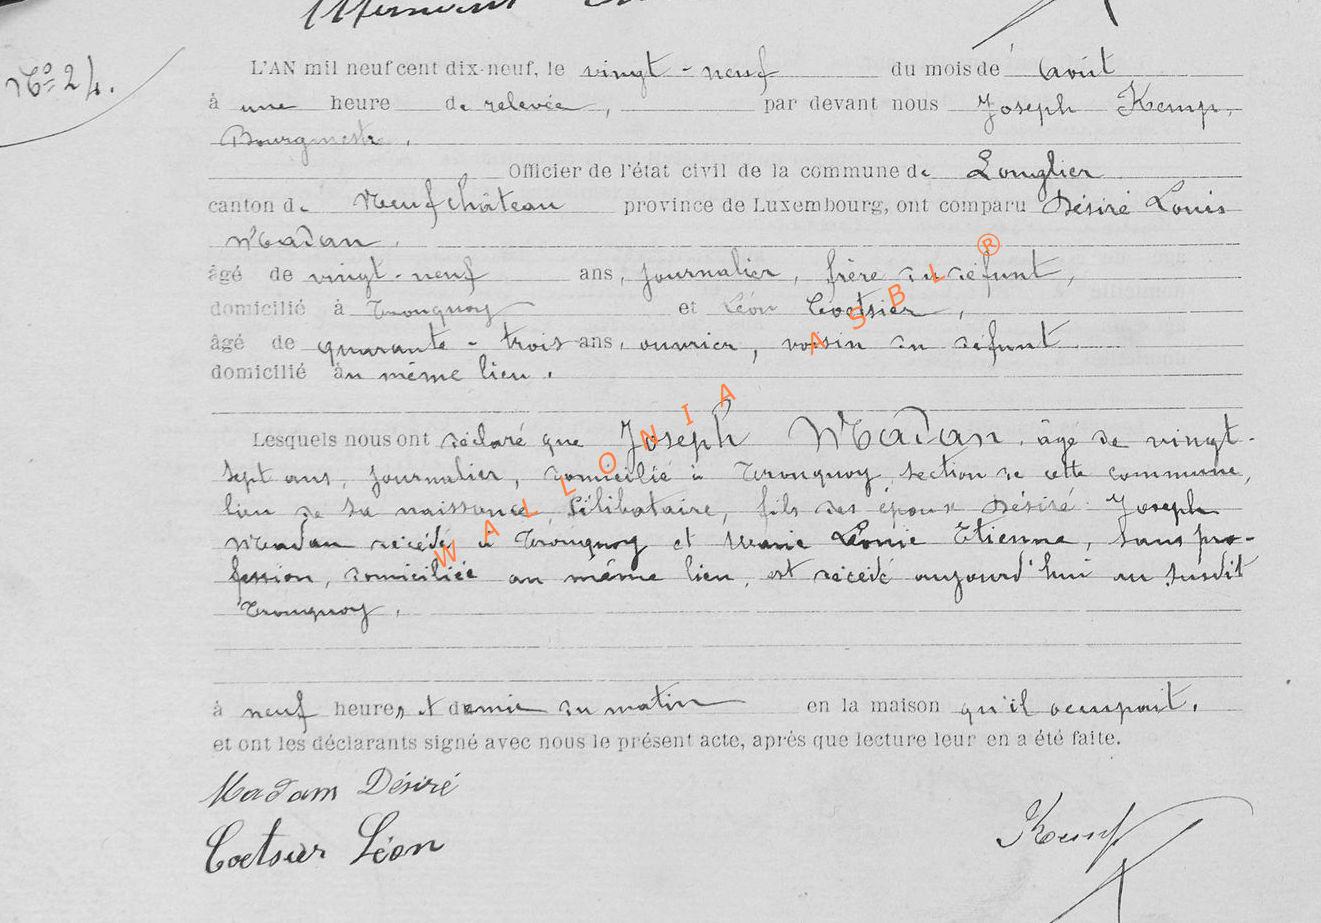 N° 24.
L'AN mil neuf cent dix-neuf, le vingt-neuf du mois de Août
à une heure de relevée, par devant nous Joseph Kemp,
Bourgmestre.
Officier de l'état civil de la commune de Longlier
canton de Neufchâteau province de Luxembourg, ont comparu Désiré Louis
Madan.
âgé de vingt-neuf ans, journalier, frère du défunt,
domicilié à Tronquoy et Léon Coetsier,
âgé de quarante-trois ans, ouvrier, voisin du défunt
domicilié au même lieu.
Lesquels nous ont déclaré que Joseph Madan, âgé de vingt-
sept ans, journalier, domicilié à Tronquoy, section de cette commune,
lieu de sa naissance, célibataire, fils des époux Désiré Joseph
Madan décédé à Tronquoy et Marie Léonie Etienne, sans pro-
fession, domiciliée au même lieu, est décédé aujourd'hui au susdit
Tronquoy.
à neuf heures et demie du matin en la maison qu'il occupait.
et ont les déclarants signé avec nous le présent acte, après que lecture leur en a été faite.
Madam Désiré
Coetsier Léon
Kemp
WALLONIA ASBL ®